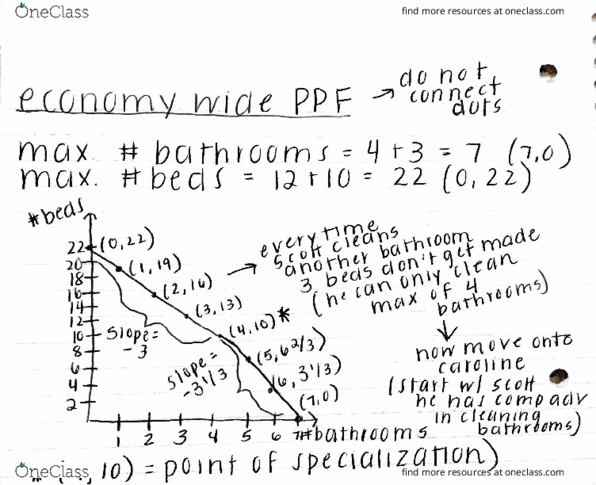 OneClass
find more resources at oneclass.com
economy wide PPF → do not
connect
dots
max. # bathrooms = 4 + 3 = 7 (7,0)
max. # beds = 12 + 10 = 22 (0, 22)
# beds
every time
scott cleans
another bathroom
3 beds don't get made
(he can only clean
max of 4
bathrooms)
now move onto
caroline
(start w/ scott
he has comp adv
in cleaning
bathrooms)
22 (0,22)
20 (1,19)
18
16 (2,16)
14 (3,13)
12
10 (4,10)*
8 (5,6 2/3)
6
4 (6,3 1/3)
2 (7,0)
slope =
-3
slope =
-3 1/3
1 2 3 4 5 6 7 # bathrooms
, 10) = point of specialization)
OneClass
find more resources at oneclass.com